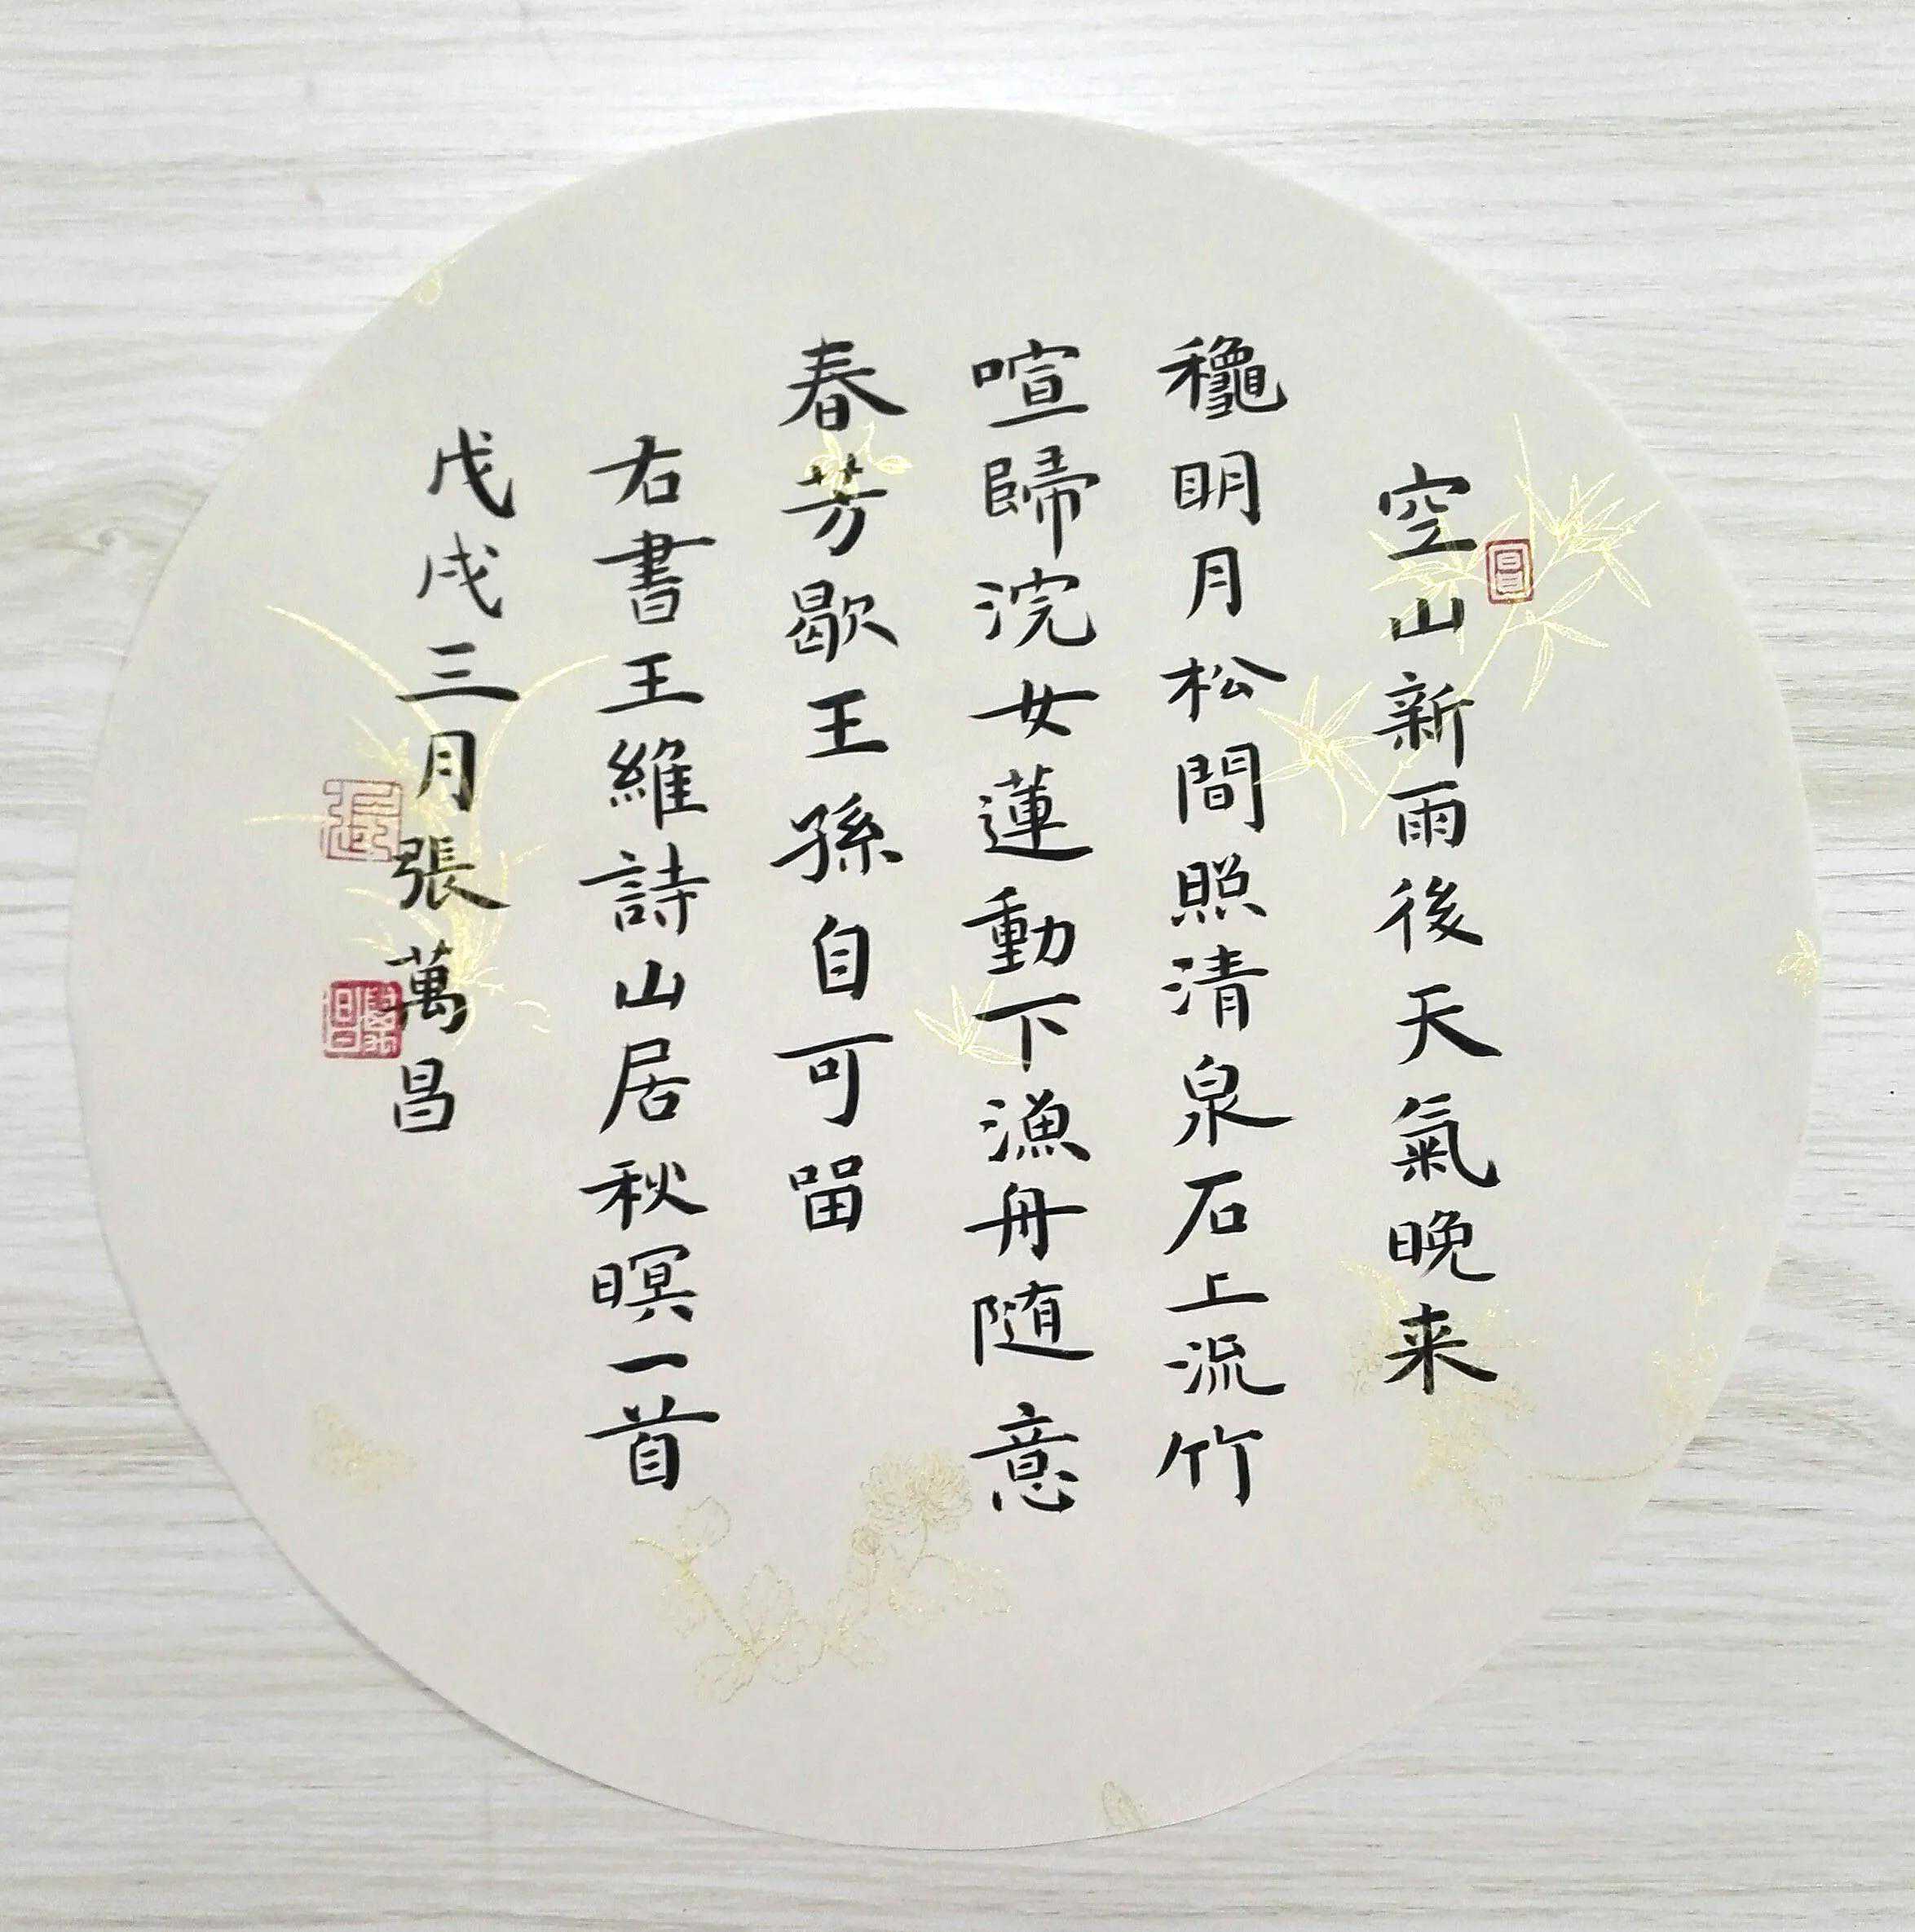 空山新雨後天氣晚来
龝明月松間照清泉石上流竹
喧歸浣女蓮動下漁舟随意
春芳歇王孫自可留
右書王維詩山居秋暝一首
戊戌三月張萬昌